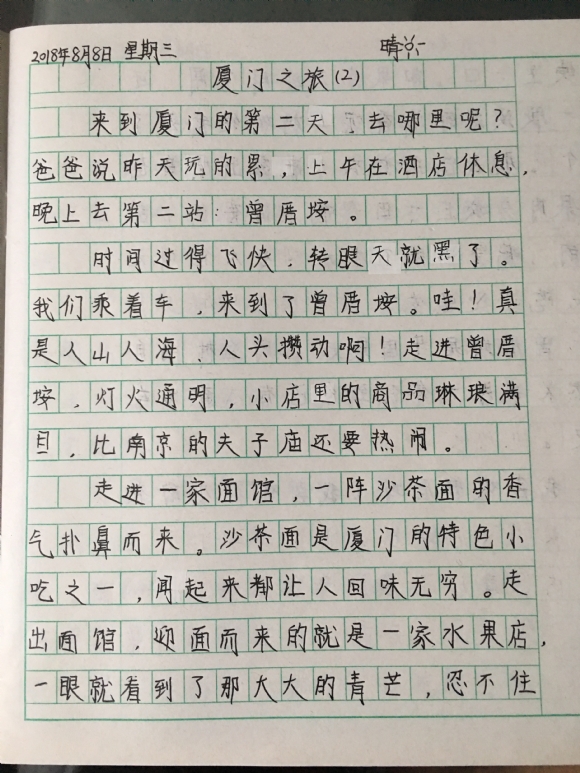 2018年8月8日 星期三 晴
厦门之旅(2)
来到厦门的第二天,去哪里呢?
爸爸说昨天玩的累,上午在酒店休息,
晚上去第二站:曾厝垵。
时间过得飞快,转眼天就黑了。
我们乘着车,来到了曾厝垵。哇!真
是人山人海、人头攒动啊!走进曾厝
垵,灯火通明,小店里的商品琳琅满
目,比南京的夫子庙还要热闹。
走进一家面馆,一阵沙茶面的香
气扑鼻而来。沙茶面是厦门的特色小
吃之一,闻起来都让人回味无穷。走
出面馆,迎面而来的就是一家水果店,
一眼就看到了那大大的青芒,忍不住